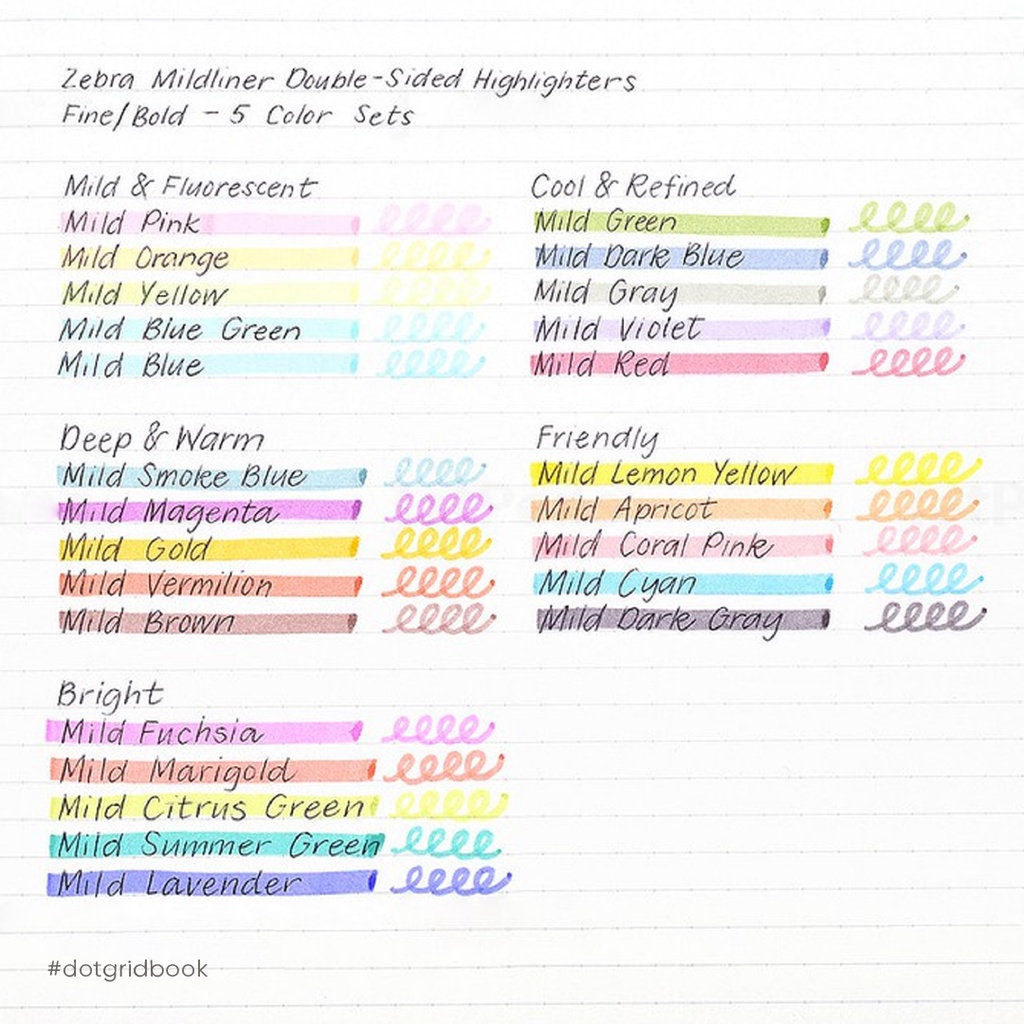 Zebra Mildliner Double-Sided Highlighters
Fine/Bold - 5 Color Sets
Mild & Fluorescent
Mild Pink
Mild Orange
Mild Yellow
Mild Blue Green
Mild Blue
Cool & Refined
Mild Green
Mild Dark Blue
Mild Gray
Mild Violet
Mild Red
Deep & Warm
Mild Smoke Blue
Mild Magenta
Mild Gold
Mild Vermilion
Mild Brown
Friendly
Mild Lemon Yellow
Mild Apricot
Mild Coral Pink
Mild Cyan
Mild Dark Gray
Bright
Mild Fuchsia
Mild Marigold
Mild Citrus Green
Mild Summer Green
Mild Lavender
#dotgridbook